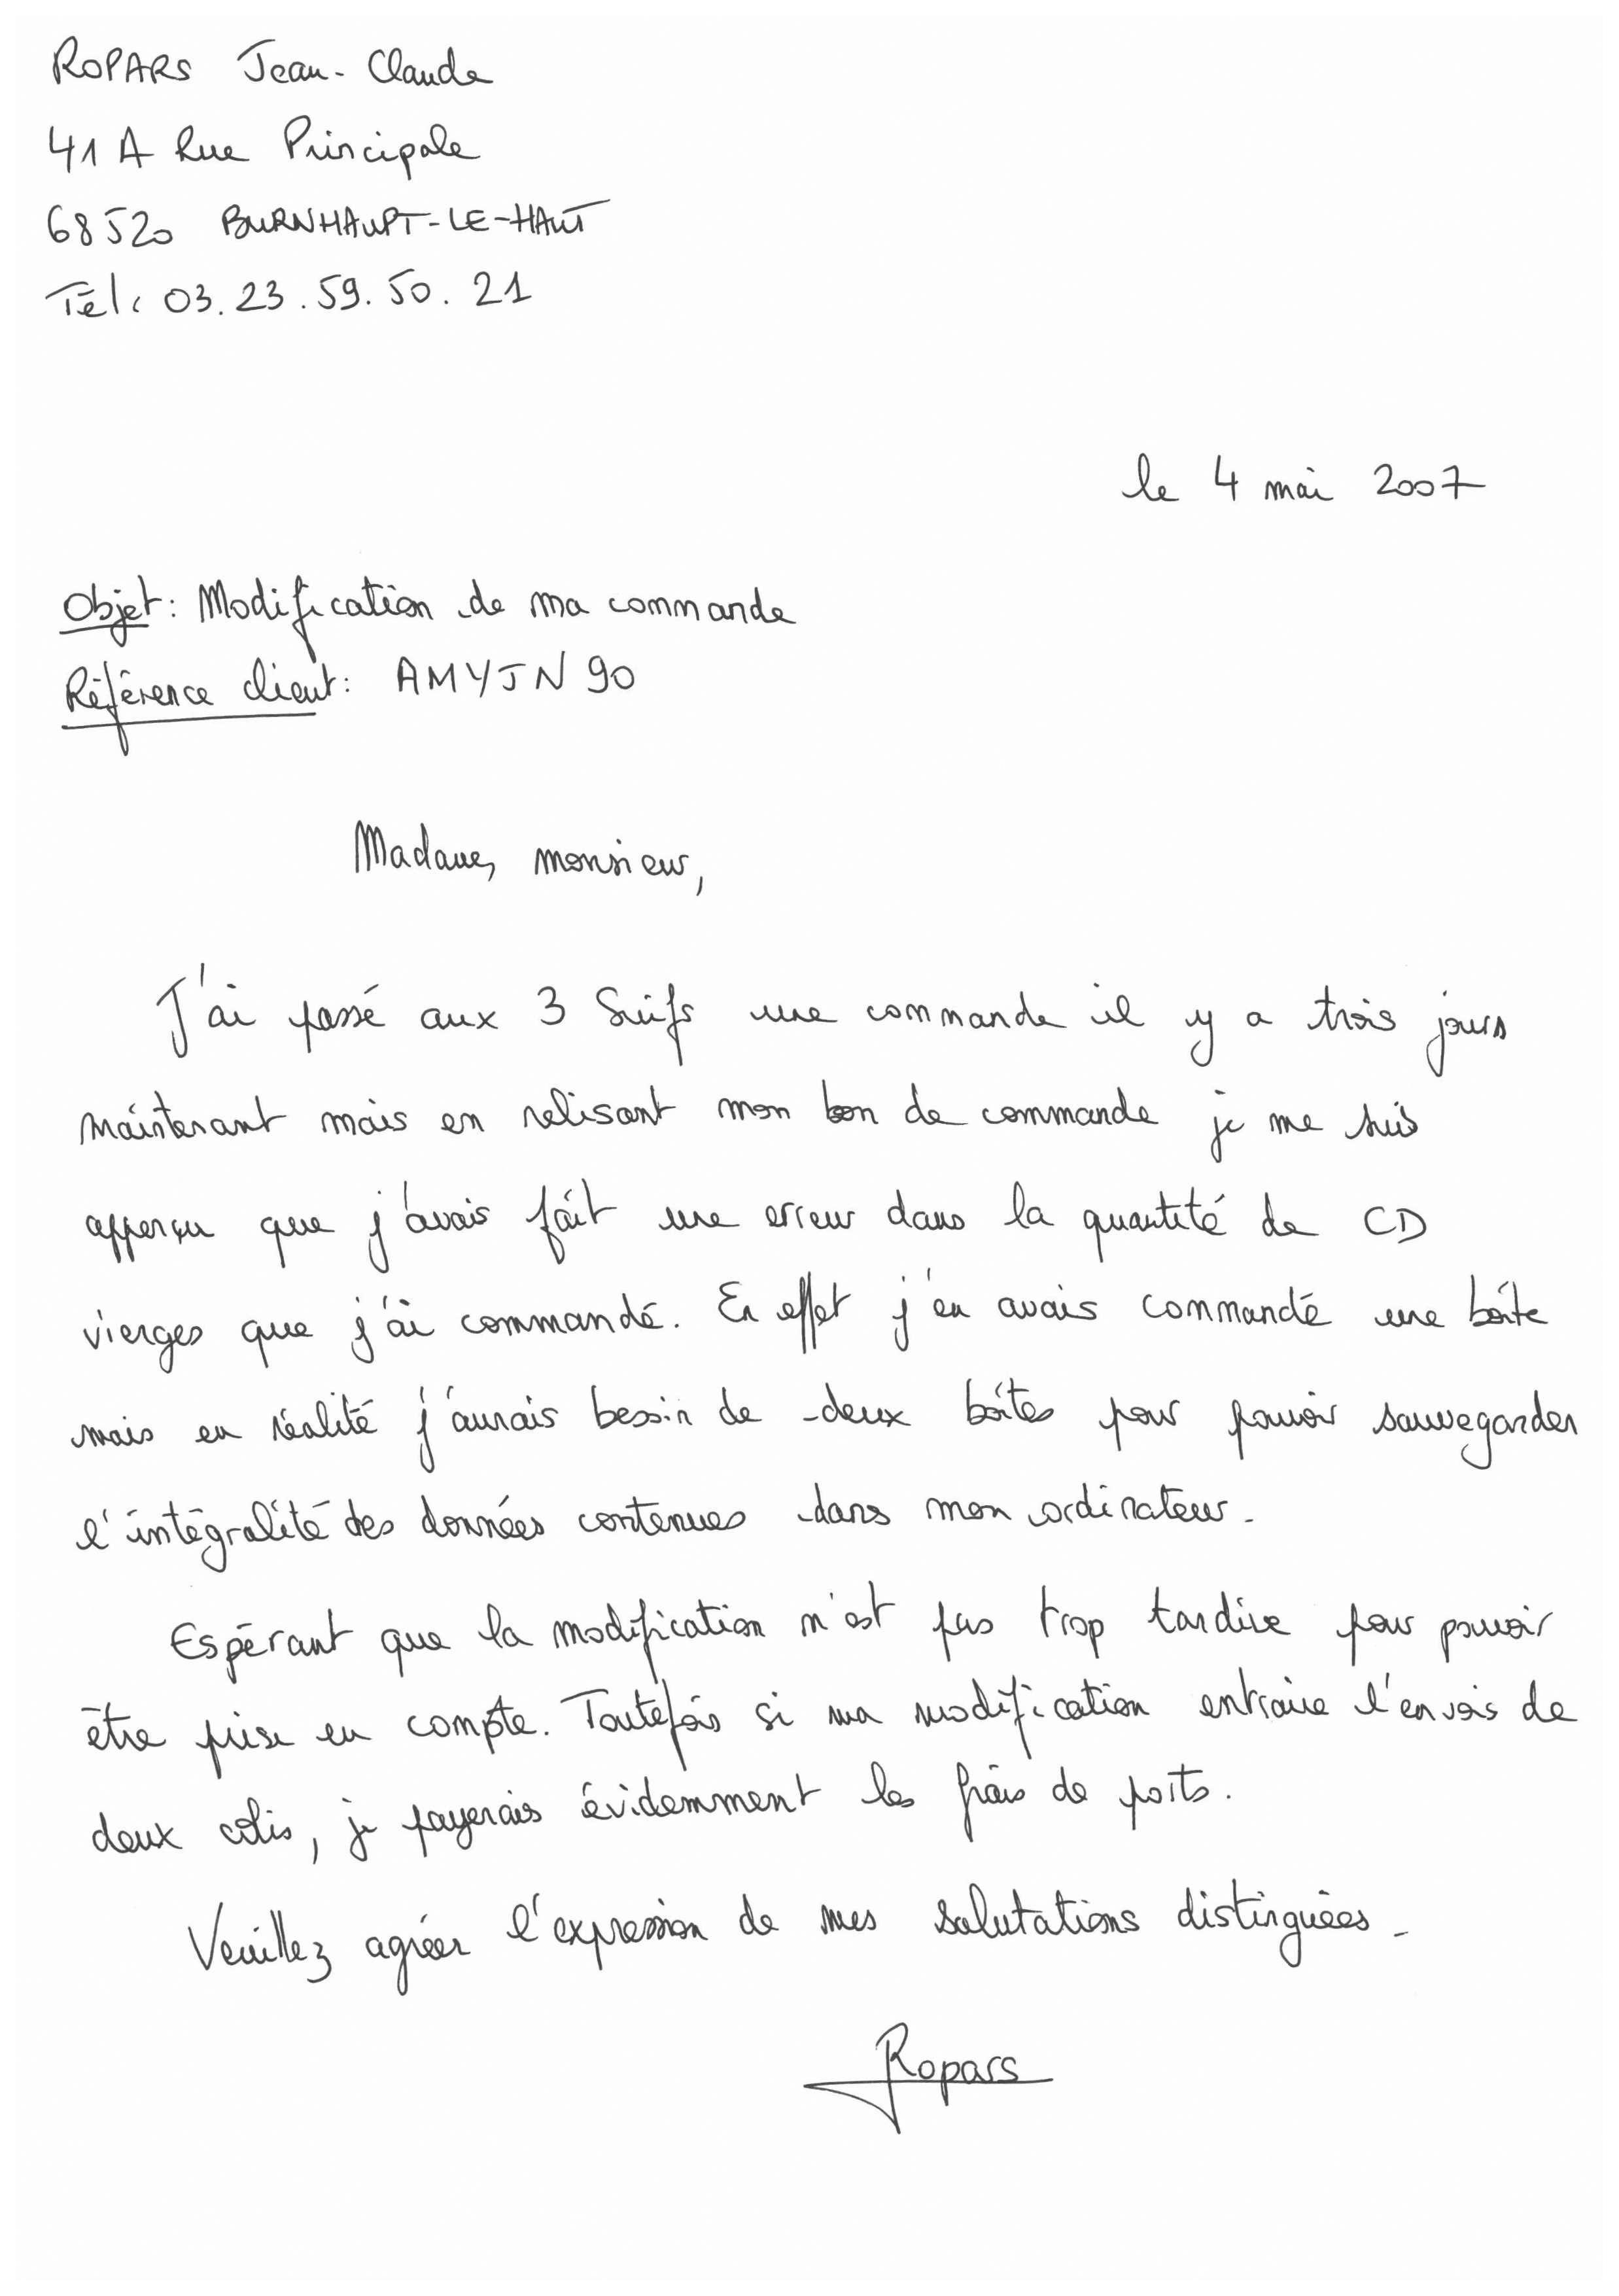 ROPARS Jean-Claude
41 A Rue Principale
68520 BURNHAUPT-LE-HAUT
Tél: 03.23.59.50.21
le 4 mai 2007
Objet: Modification de ma commande
Référence client: AMYJN90
Madame, monsieur,
J'ai passé aux 3 Suifs une commande il y a trois jours
maintenant mais en relisant mon bon de commande je me suis
apperçu que j'avais fait une erreur dans la quantité de CD
vierges que j'ai commandé. En effet j'en avais commandé une boîte
mais en réalité j'aurais besoin de deux boîtes pour pouvoir sauvegarder
l'intégralité des données contenues dans mon ordinateur.
Espérant que la modification n'est pas trop tardive pour pouvoir
être prise en compte. Toutefois si ma modification entraine l'envois de
deux colis, je payerais évidemment les frais de ports.
Veuillez agréer l'expression de mes salutations distinguées.
Ropars